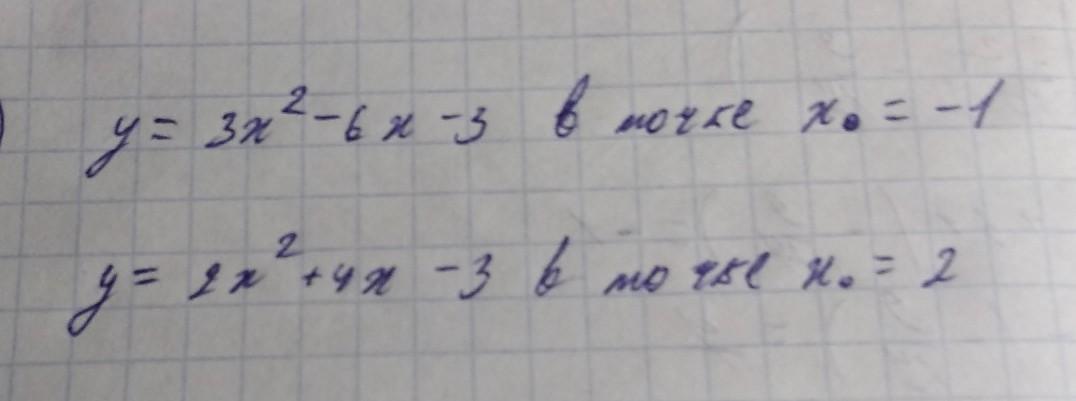 y = 3x² - 6x - 3 в точке x₀ = -1
y = 2x² + 4x - 3 в точке x₀ = 2